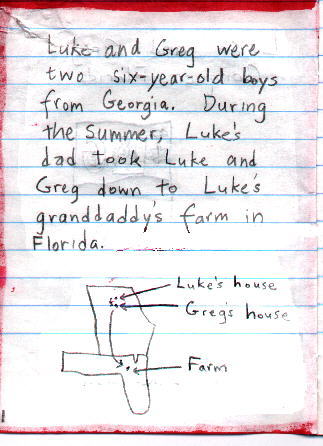 Luke and Greg were
two six-year-old boys
from Georgia. During
the Summer, Luke's
dad took Luke and
Greg down to Luke's
granddaddy's farm in
Florida.
Luke's house
Greg's house
Farm